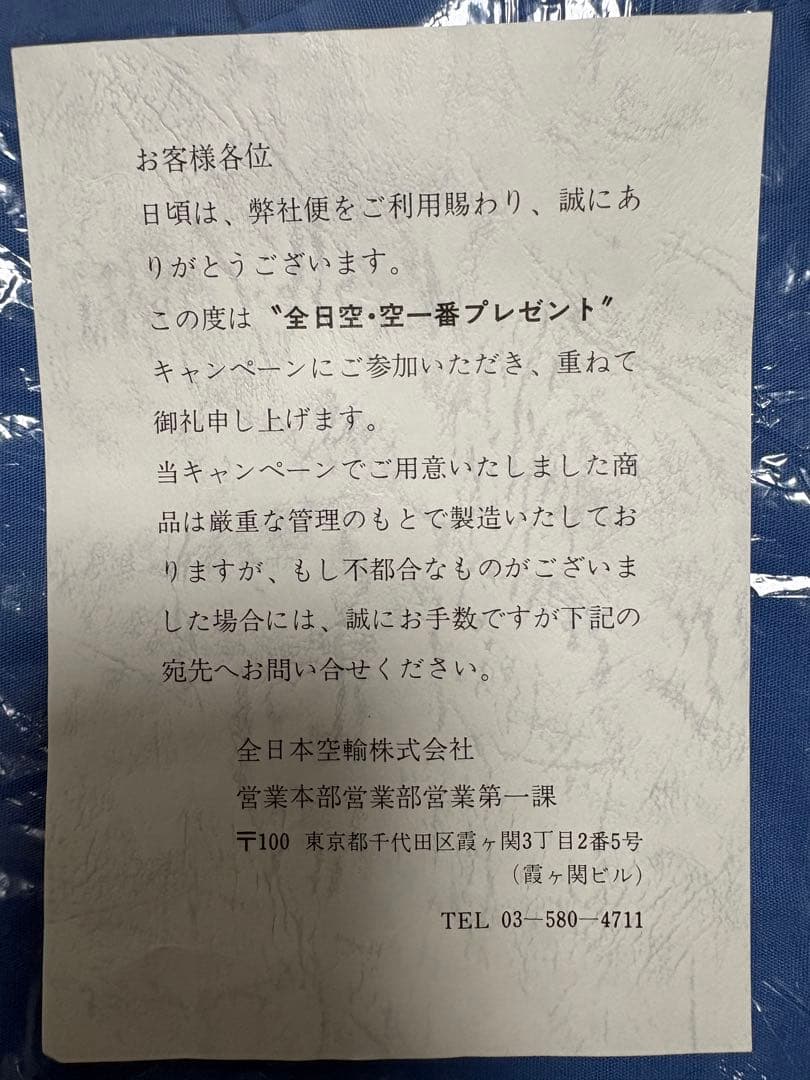 お客様各位
日頃は、弊社便をご利用賜わり、誠にあ
りがとうございます。
この度は〝全日空・空一番プレゼント〞
キャンペーンにご参加いただき、重ねて
御礼申し上げます。
当キャンペーンでご用意いたしました商
品は厳重な管理のもとで製造いたしてお
りますが、もし不都合なものがございま
した場合には、誠にお手数ですが下記の
宛先へお問い合せください。
全日本空輸株式会社
営業本部営業部営業第一課
〒100 東京都千代田区霞ヶ関3丁目2番5号
(霞ヶ関ビル)
TEL 03―580―4711